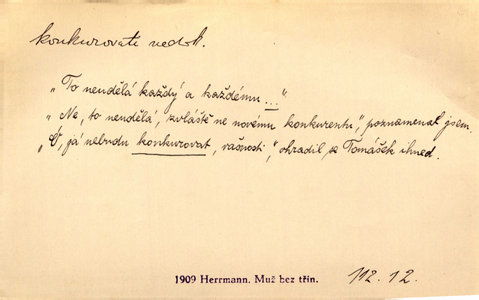 konkurovati nedok.
„To neudělá každý a každému ...“
„Ne, to neudělá, zvláště ne novému konkurentu“, poznamenal jsem.
„Ó, já nebudu konkurovat, vašnosti“, ohradil se Tomášek ihned.
1909 Herrmann. Muž bez třin. 112. 12.